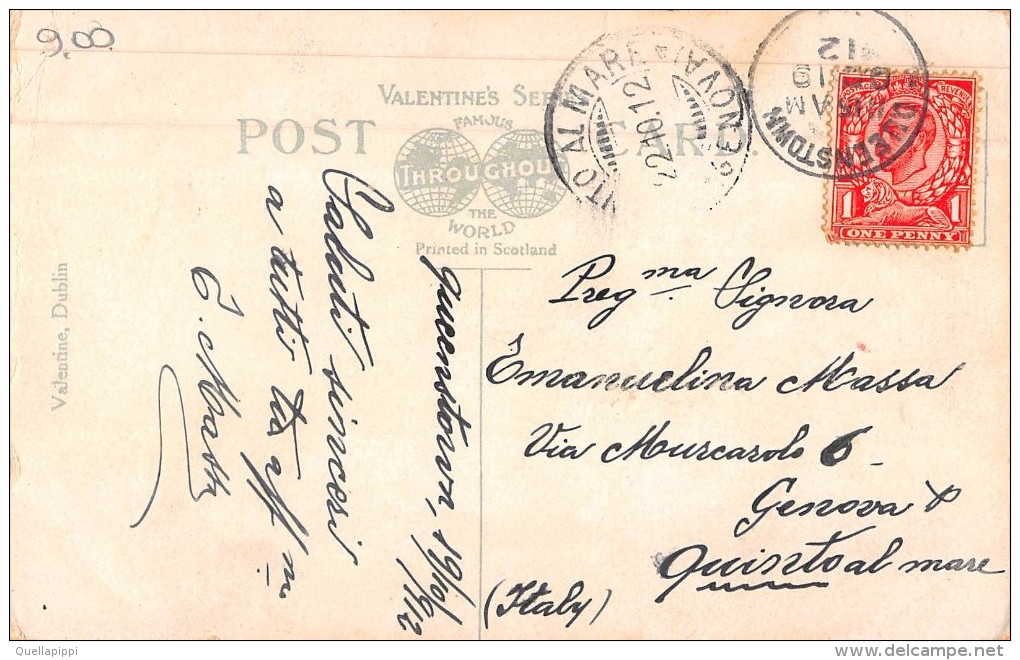 9,00
VALENTINE'S SERIES
FAMOUS
POST CARD.
THROUGHOUT
THE
WORLD
Printed in Scotland
Valentine, Dublin
NTO AL MARE (GENOVA)
22.10.12
QUEENSTOWN
AM
OC 19
12
POSTAGE REVENUE
1 1
ONE PENNY
Queenstown, 19/10/912
Saluti sinceri
a tutti
aff mi
E. Massa
Preg ma Signora
Emanuelina Massa
Via Murcarolo 6
Genova p
Quinto al mare
(Italy)
Quellapippi
delcampe.net